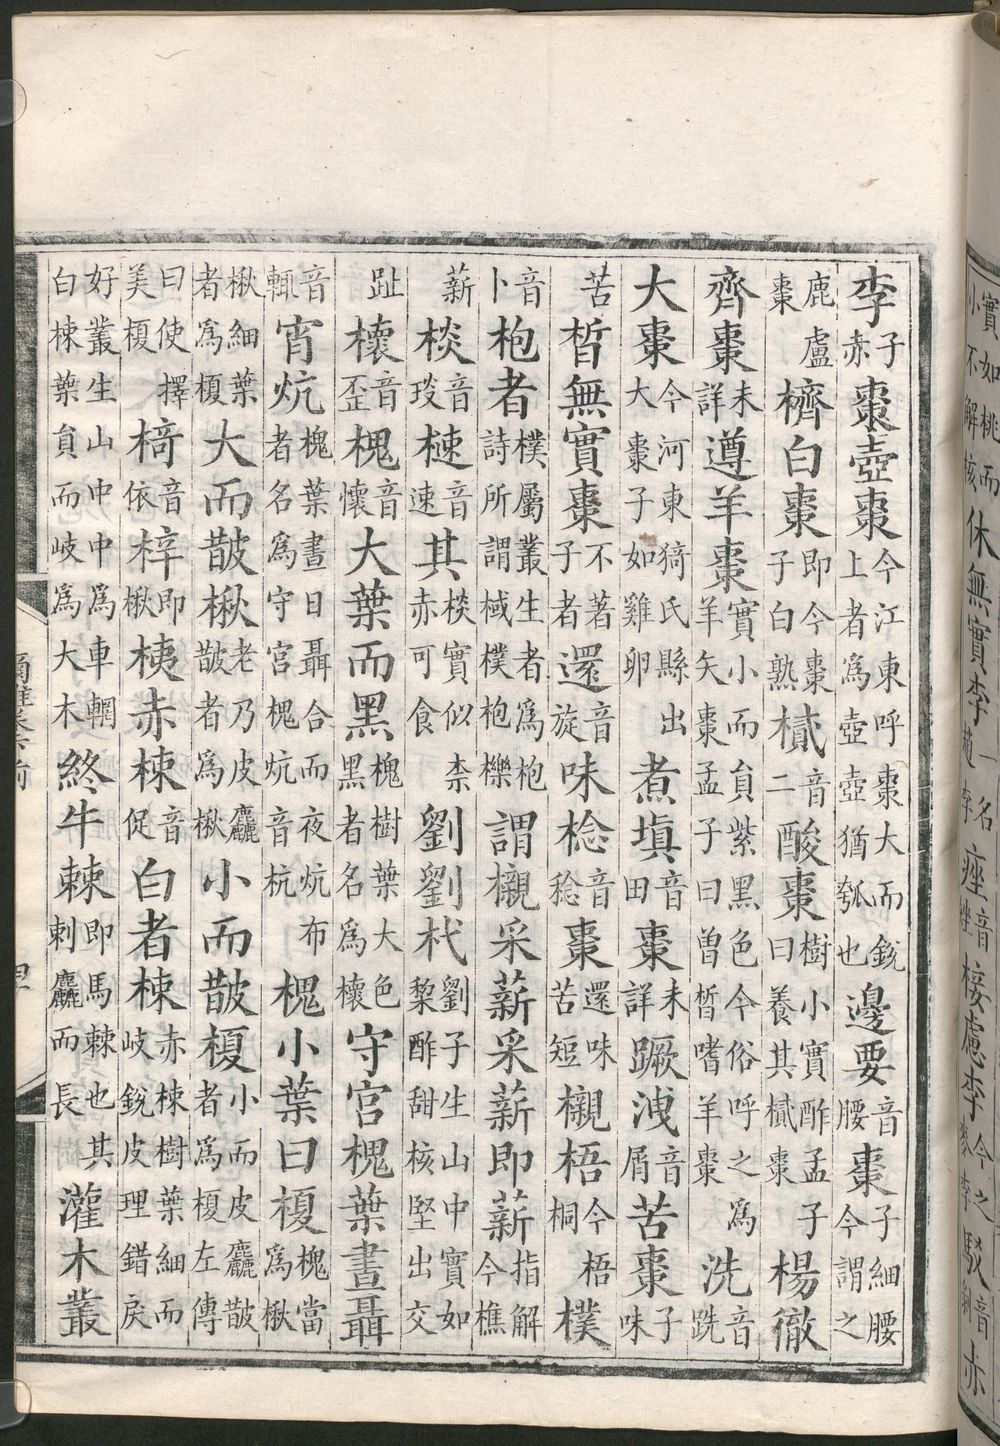 實如桃而小不解核休無實李一名趙李痤音椄慮李今之麥李駁音剝赤
李子赤棗壺棗今江東呼棗大而銳上者爲壺壺猶瓠也邊要音腰棗子細腰今謂之
鹿盧棗櫅白棗即今棗子白熟樲音二酸棗樹小實酢孟子曰養其樲棗楊徹
齊棗未詳遵羊棗實小而員紫黑色今俗呼之爲羊矢棗孟子曰曾皙嗜羊棗洗音跣
大棗今河東猗氏縣出大棗子如雞卵煮塡音田棗未詳蹶洩音屑苦棗子味
苦皙無實棗不著子者還音旋味棯音稔棗還味苦短櫬梧今梧桐樸
音卜枹者樸屬叢生者爲枹詩所謂棫樸枹櫟謂櫬采薪采薪即薪指解今樵
薪棪音琰梀音速其棪實似柰赤可食劉劉杙劉子生山中實如棃酢甜核堅出交
趾櫰音歪槐音懷大葉而黑槐樹葉大色黑者名爲櫰守宮槐葉晝聶
音輒宵炕槐葉晝日聶合而夜炕布者名爲守宮槐炕音杭槐小葉曰榎槐當爲楸
楸細葉者爲榎大而皵楸老乃皮麤皵者爲楸小而皵榎小而皮麤皵者爲榎左傳
曰使擇美榎椅音依梓即楸桋赤梀音促白者梀赤梀樹葉細而岐銳皮理錯戾
好叢生山中中爲車輞白梀葉員而岐爲大木終牛棘即馬棘也其刺麤而長灌木叢